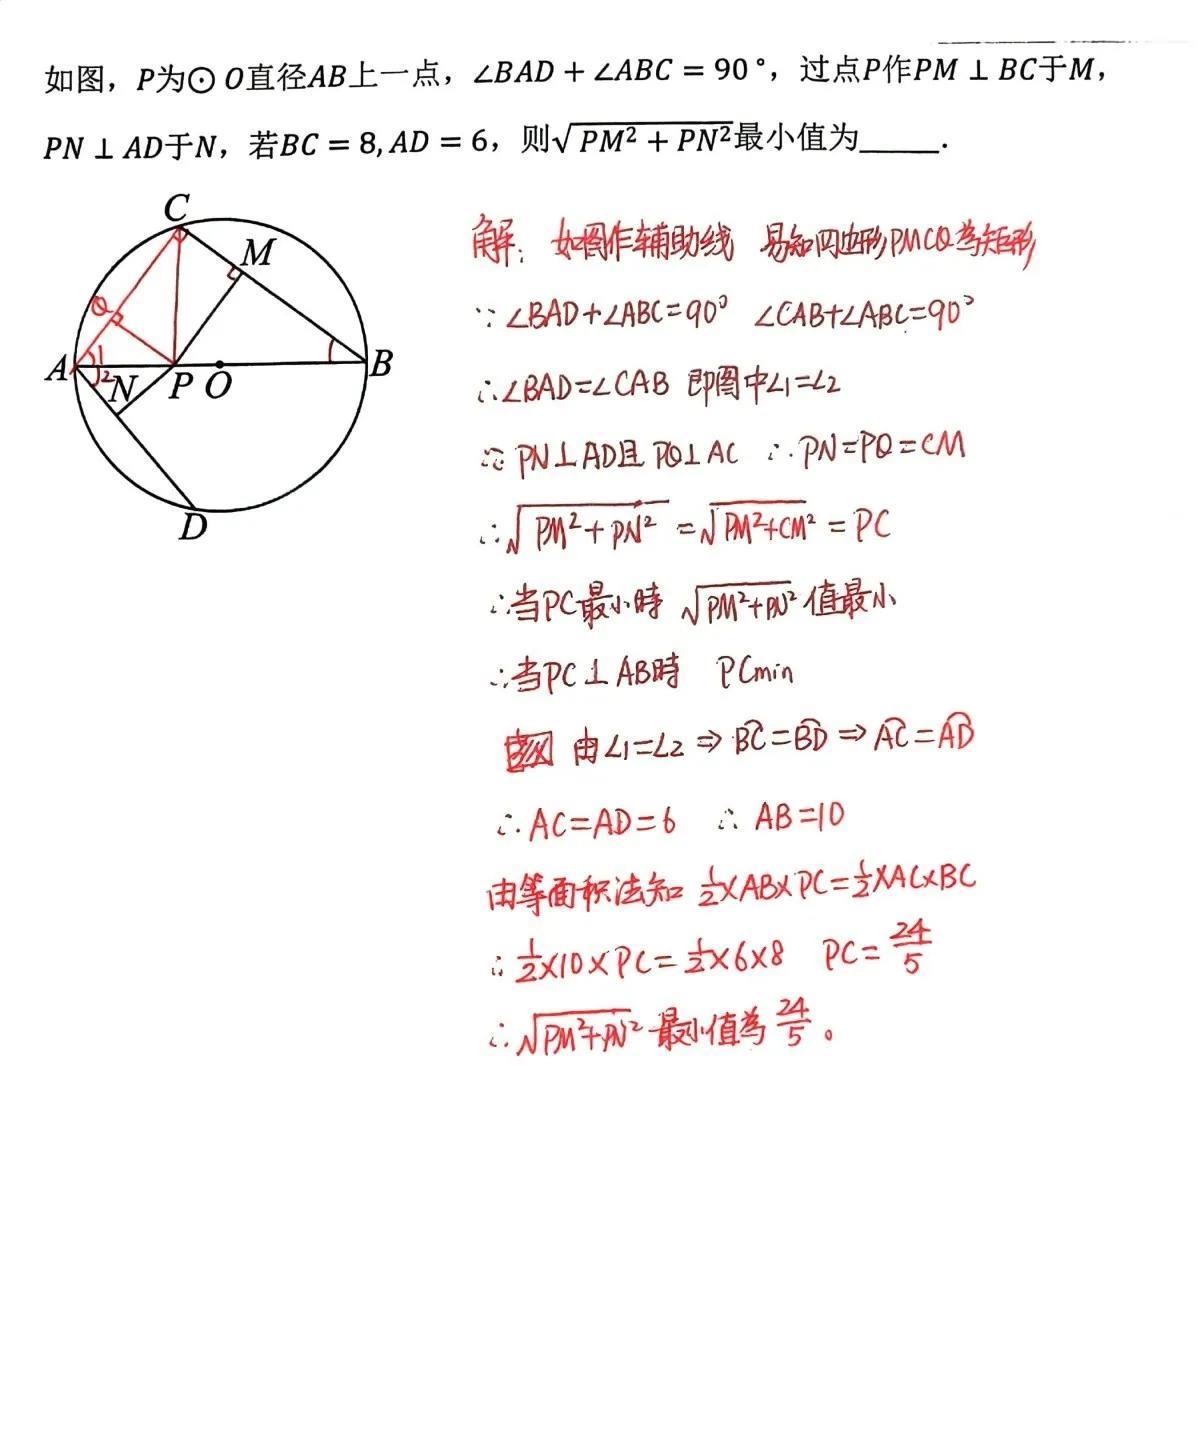 如图，P为⊙O直径AB上一点，∠BAD + ∠ABC = 90°，过点P作PM ⊥ BC于M，
PN ⊥ AD于N，若BC = 8, AD = 6，则√PM² + PN²最小值为_____.
C
M
Q
A
1
2
N
P
O
B
D
解：如图作辅助线 易知四边形PMCQ為矩形
∵∠BAD+∠ABC=90° ∠CAB+∠ABC=90°
∴∠BAD=∠CAB 即图中∠1=∠2
∵PN⊥AD且PQ⊥AC ∴PN=PQ=CM
∴√PM²+PN² =√PM²+CM² = PC
∴当PC最小時 √PM²+PN² 值最小
∴当PC⊥AB時 PCmin
由∠1=∠2 ⇒ B͡C=B͡D ⇒ A͡C=A͡D
∴AC=AD=6 ∴AB=10
由等面积法知 ½×AB×PC=½×AC×BC
∴½×10×PC=½×6×8 PC=24/5
∴√PM²+PN² 最小值為24/5。